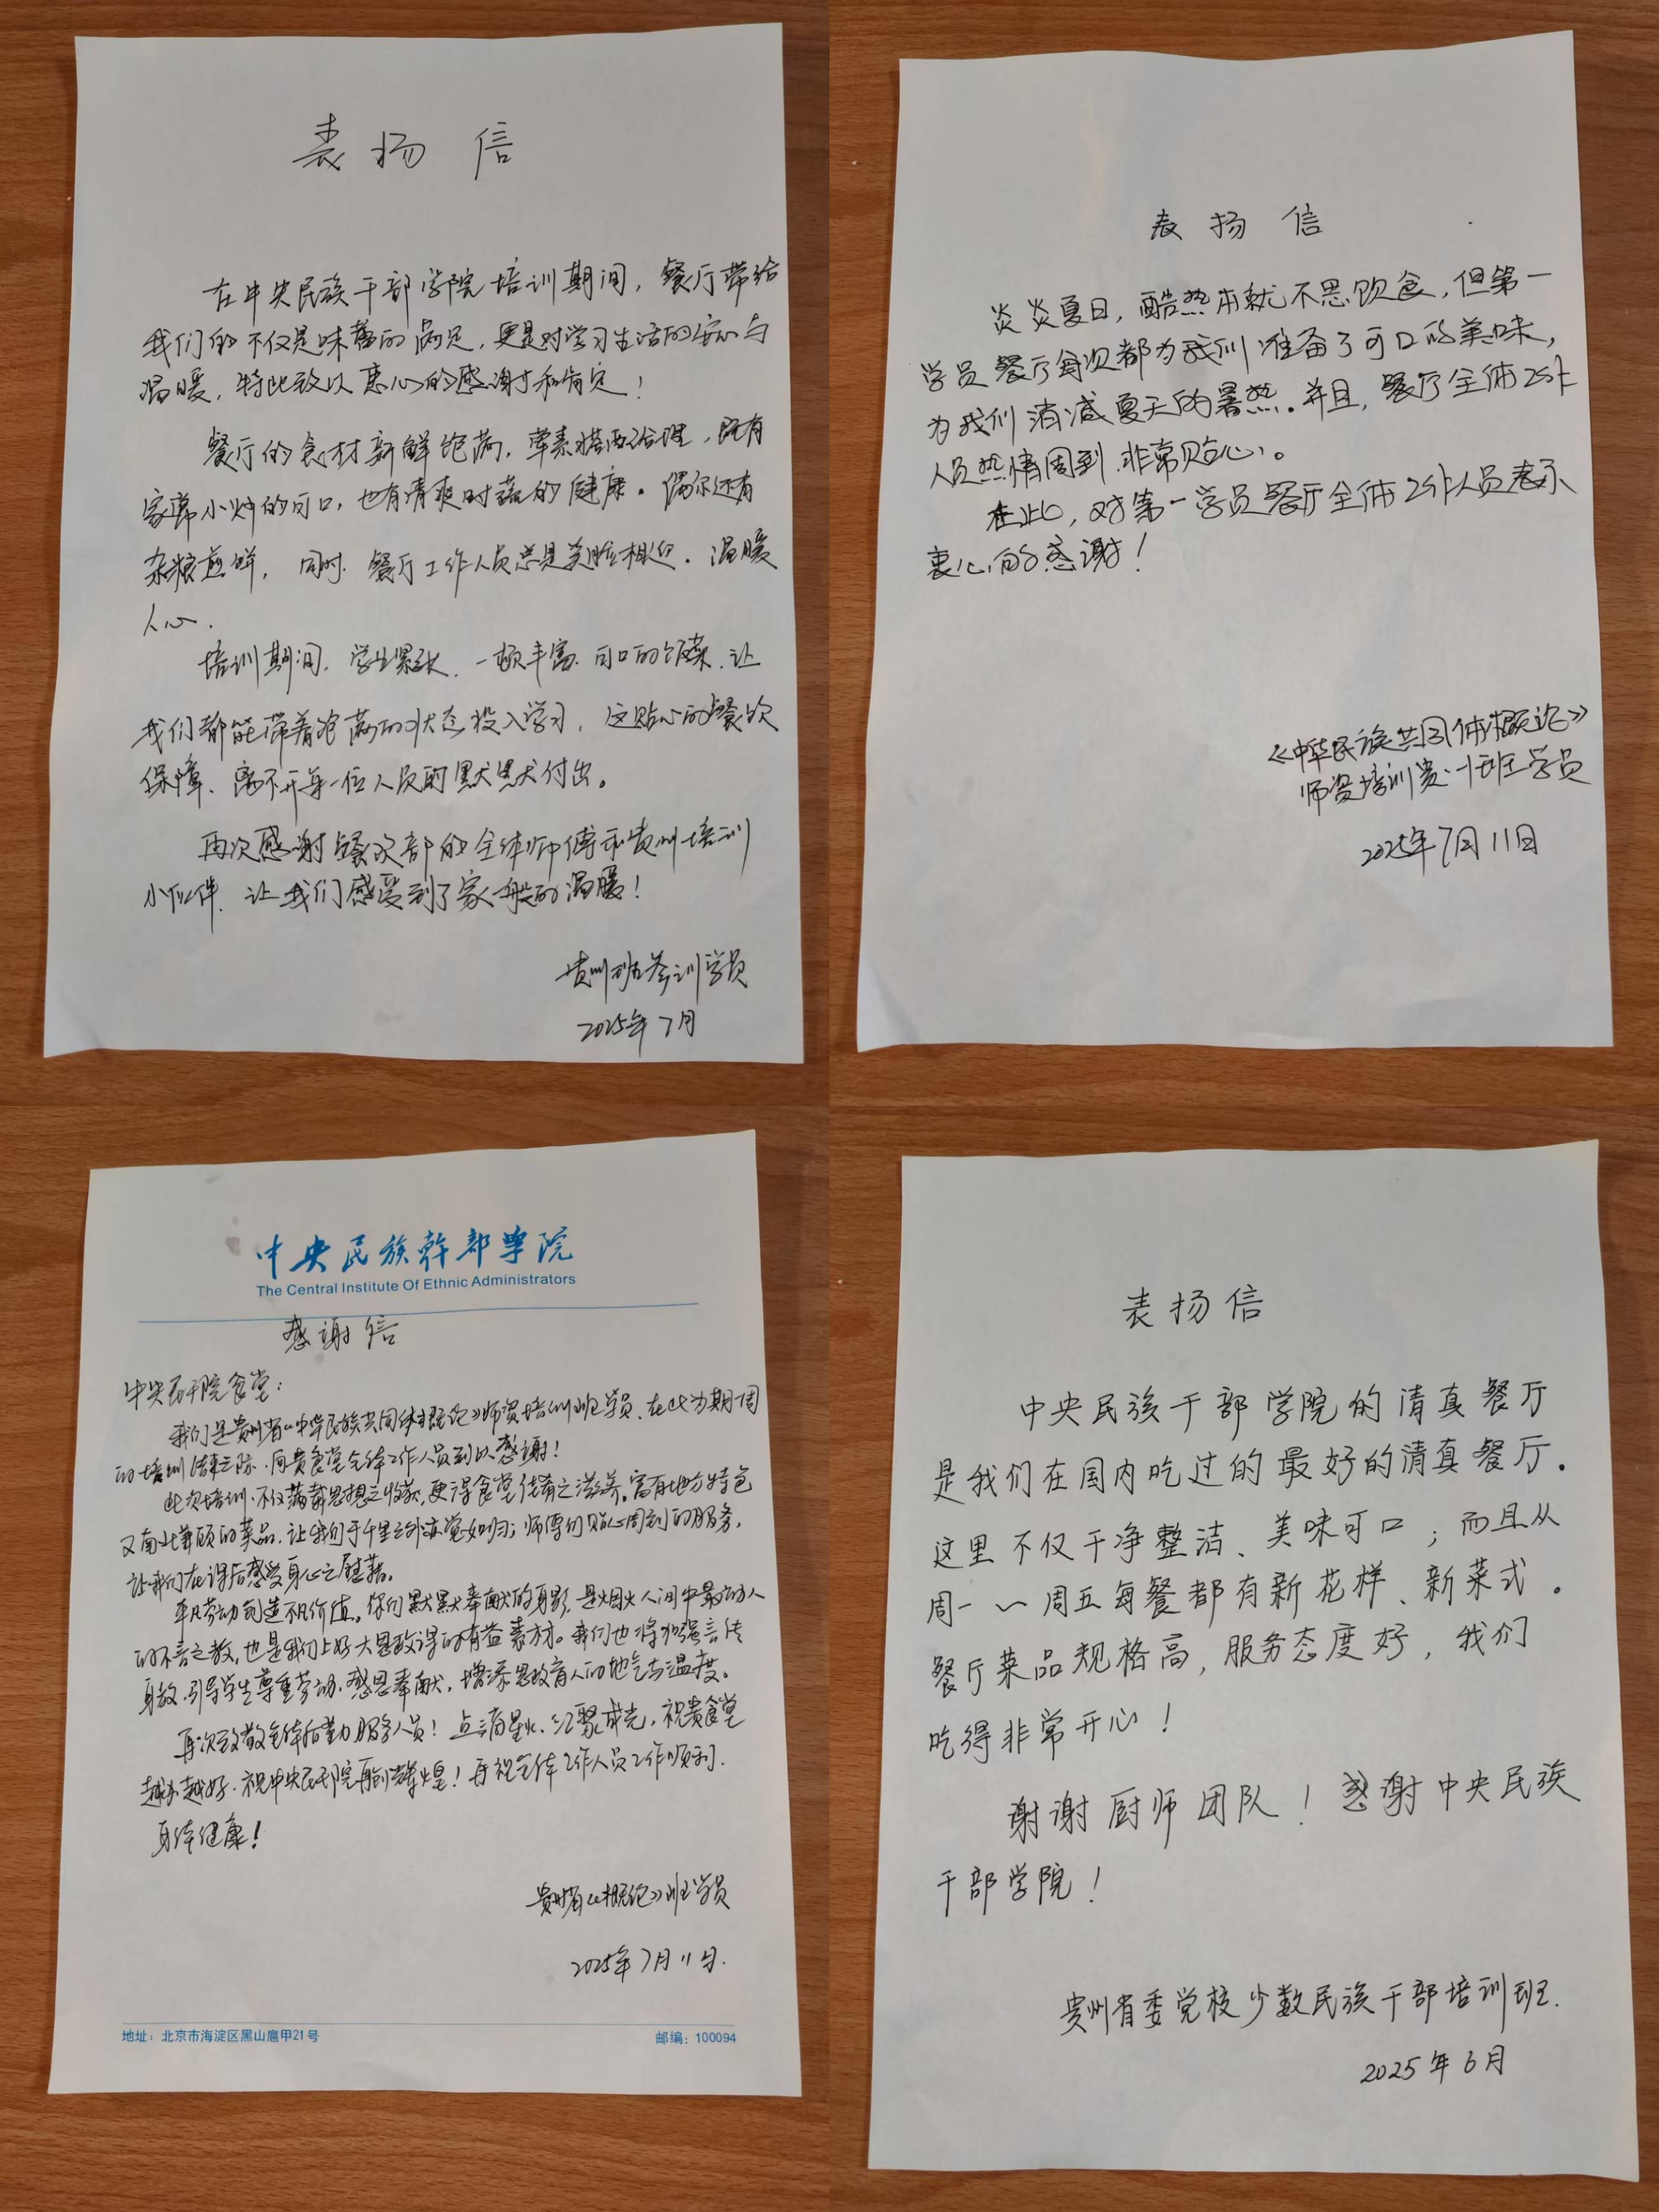 表扬信
在中央民族干部学院培训期间，餐厅带给
我们的不仅是味蕾的满足，更是对学习生活的安心与
温暖，特此致以衷心的感谢和肯定！
餐厅的食材新鲜饱满，荤素搭配合理，既有
家常小炒的可口，也有清爽时蔬的健康。偶尔还有
杂粮煎饼，同时，餐厅工作人员总是笑脸相迎，温暖
人心。
培训期间，学生紧张，一顿丰富、可口的饭菜，让
我们都能带着饱满的状态投入学习，这贴心的餐饮
保障、离不开每一位人员的默默付出。
再次感谢餐饮部的全体师傅和贵州培训
小伙伴，让我们感受到了家一般的温暖！
贵州班参训学员
2025年7月
表扬信
炎炎夏日，酷热本就不思饮食，但第一
学员餐厅每次都为我们准备了可口的美味，
为我们消减夏天的暑热。并且，餐厅全体工作
人员热情周到，非常贴心。
在此，对第一学员餐厅全体工作人员表示
衷心的感谢！
《中华民族共同体概论》
师资培训贵州班学员
2025年7月11日
中央民族幹部學院
The Central Institute Of Ethnic Administrators
感谢信
中央民干院食堂：
我们是贵州省《中华民族共同体概论》师资培训班学员，在此为期一周
的培训结束之际，向贵食堂全体工作人员致以感谢！
此次培训，不仅满载思想之收获，更得食堂佳肴之滋养。富有地方特色
又南北兼顾的菜品，让我们于千里之外亦觉如归；师傅们贴心周到的服务，
让我们在课后感受身心之慰藉。
平凡劳动创造不凡价值。你们默默奉献的身影，是烟火人间中最动人
的不言之教，也是我们上好大思政课的有益素材。我们也将加强言传
身教，引导学生尊重劳动，感恩奉献，增添思政育人的地气与温度。
再次致敬全体后勤服务人员！点滴星火，汇聚成光，祝贵食堂
越办越好，祝中央民干院再创辉煌！再祝全体工作人员工作顺利，
身体健康！
贵州省《概论》班学员
2025年7月11日.
地址：北京市海淀区黑山扈甲21号
邮编：100094
表扬信
中央民族干部学院的清真餐厅
是我们在国内吃过的最好的清真餐厅。
这里不仅干净整洁、美味可口；而且从
周一～周五每餐都有新花样、新菜式。
餐厅菜品规格高，服务态度好，我们
吃得非常开心！
谢谢厨师团队！感谢中央民族
干部学院！
贵州省委党校少数民族干部培训班.
2025年6月